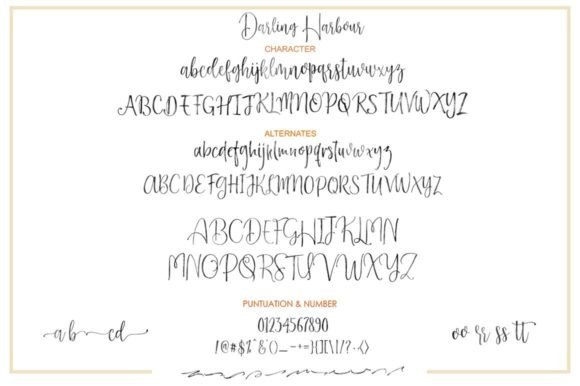 Darling Harbour
CHARACTER
abcdefghijklmnopqrstuvwxyz
ABCDEFGHIJKLMNOPQRSTUVWXYZ
ALTERNATES
abcdefghijklmnopqrstuvwxyz
ABCDEFGHIJKLMNOPQRSTUVWXYZ
ABCDEFGHIJKLMN
MNOPQRSTUVWXYZ
PUNTUATION & NUMBER
0123456789O
!@#$%^&*()_-+={}[]\|/?.<>
ab cd
oo rr ss tt